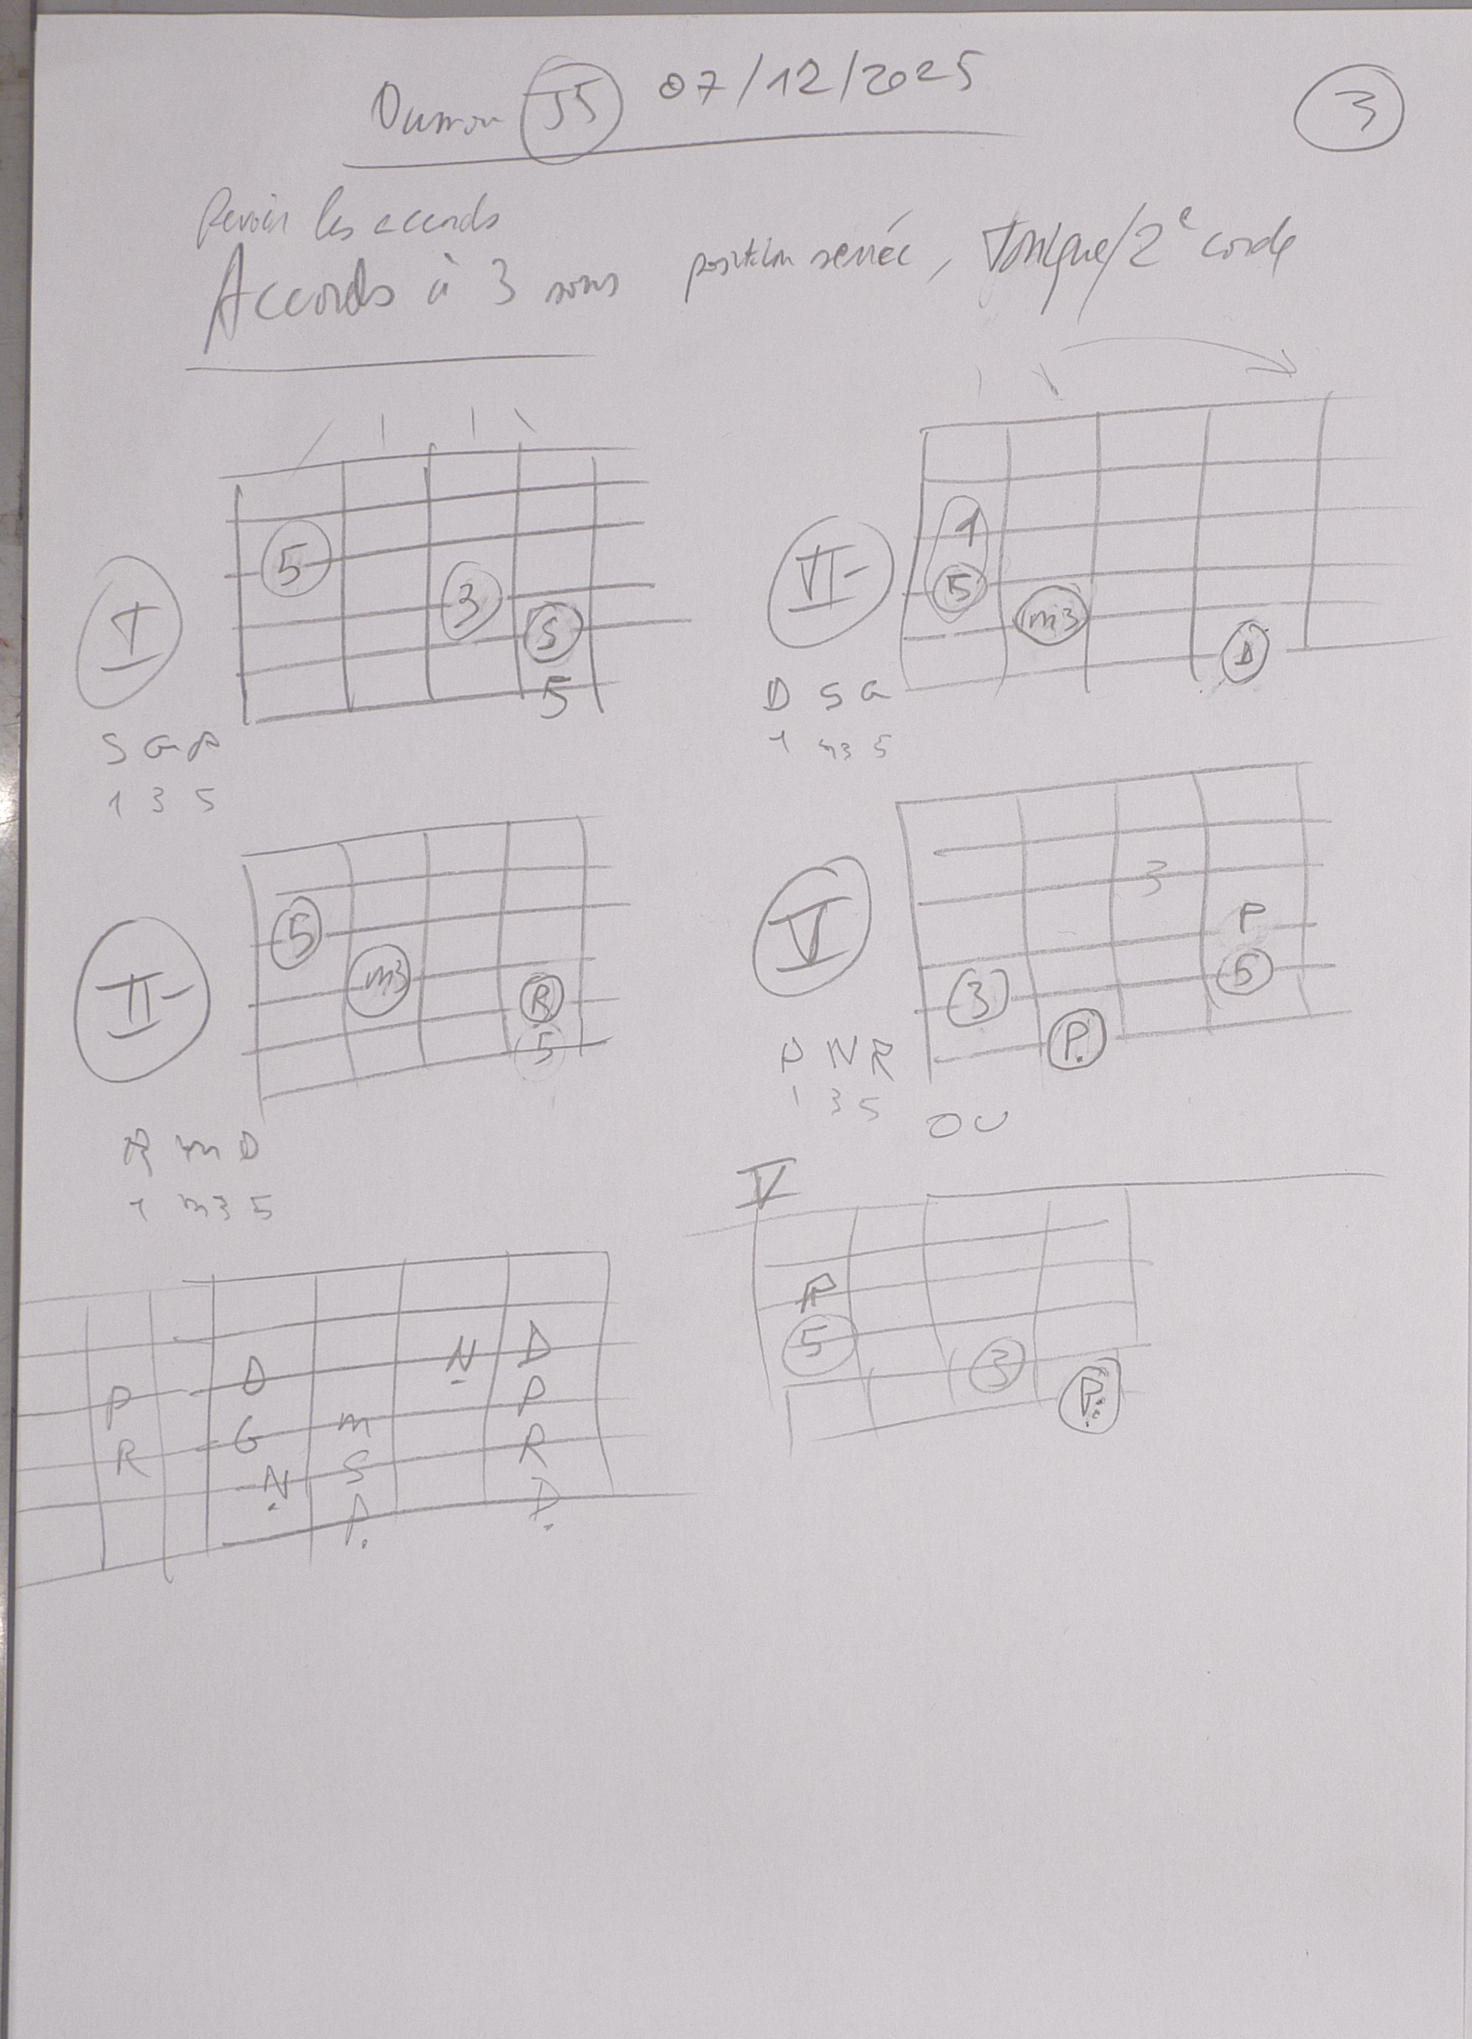 J5 07/12/2025
3
Revoir les accords
Accords à 3 sons position serrée, Tonique/2e corde
5
3
S
5
I
S G P
1 3 5
1
5
m3
D
VI-
D S G
1 m3 5
5
m3
R
5
II-
R m D
1 m3 5
3
P
5
3
P.
V
P N R
1 3 5
OU
V
P
R
D
G
N
m
S
P.
N
D
P
R
D.
R
5
3
P.